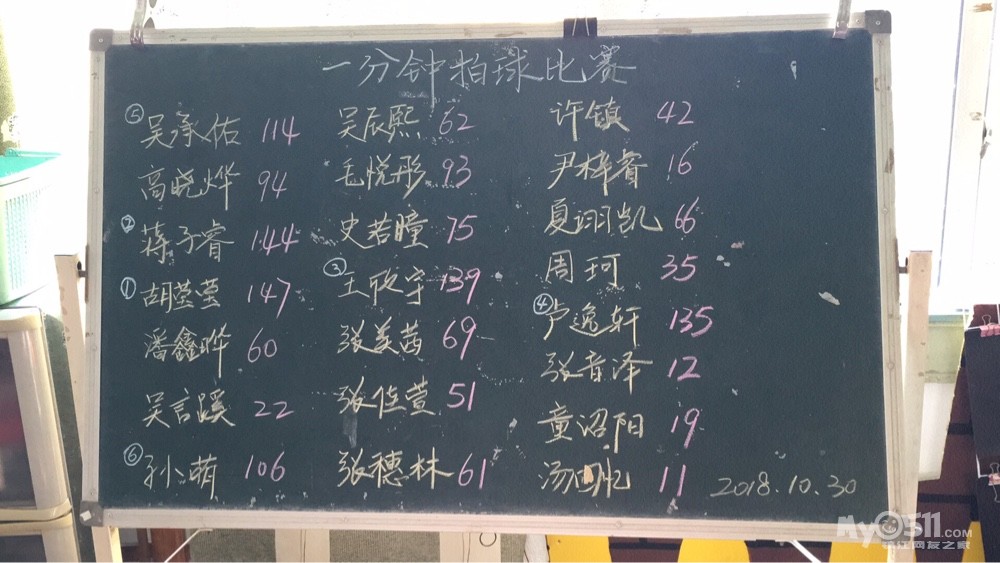 一分钟拍球比赛
⑤ 吴承佑 114 吴辰熙 62 许镇 42
高晓烨 94 毛悦彤 93 尹梓睿 16
② 蒋子睿 144 史若瞳 75 夏翊凯 66
① 胡莹莹 147 ③ 王欣宇 139 周珂 35
潘鑫晔 60 张美茜 69 ④ 卢逸轩 135
吴言蹊 22 张佳萱 51 张音泽 12
⑥ 孙萌 106 张穗林 61 童诏阳 19
汤 11
2018.10.30
My0511.COM
镇江网友之家